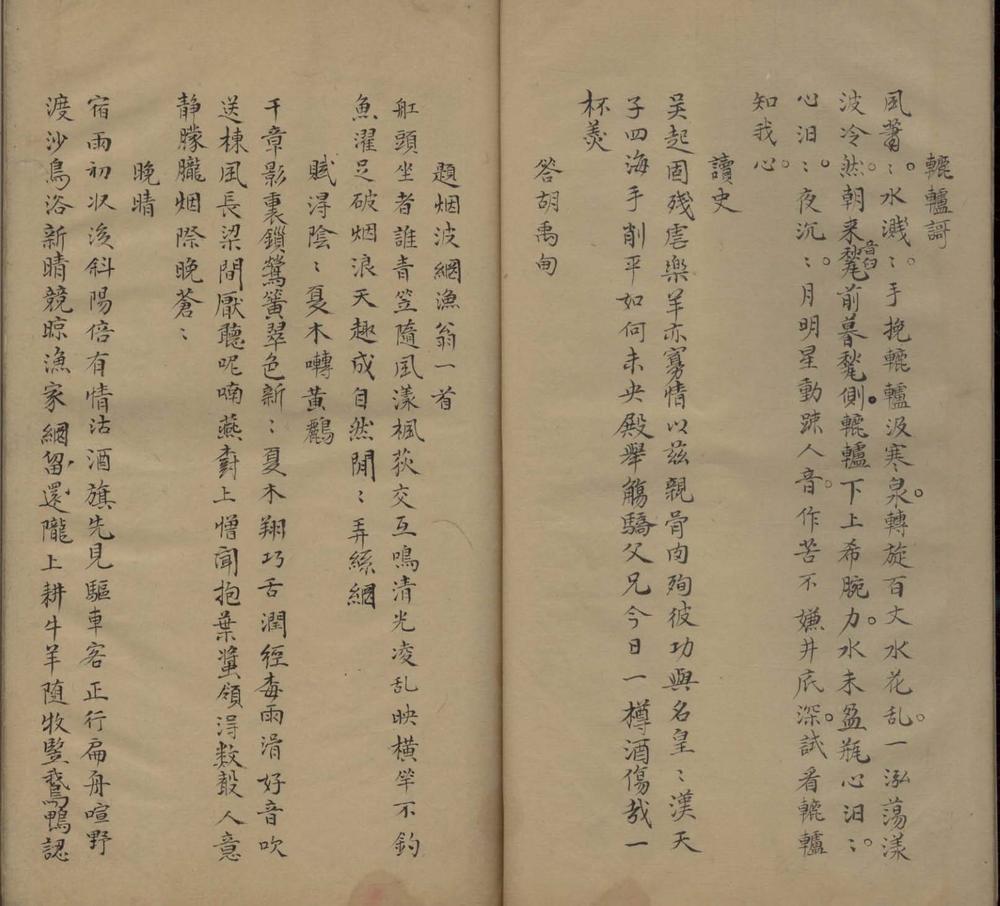 轆轤謌
風蕭。：水濺：手挽轆轤汲寒泉。轉旋百丈水花乱。一泓蕩漾
波冷然。朝来甃前暮甃側。轆轤下上希腕力。水未盈瓶心汨：。
音臼
心汨：。夜沉：。月明星動踈人音。作苦不嫌井底深。試看轆轤
知我心。
讀史
吴起固残虐樂羊亦寡情以兹親骨肉殉彼功與名皇：漢天
子四海手削平如何未央殿舉觴驕父兄今日一樽酒傷哉一
杯羮
答胡禹甸
題烟波綱漁翁一首
舡頭坐者誰青笠隨風漾楓荻交互鳴清光凌乱映橫竿不釣
魚濯足破烟浪天趣成自然閒：弄絲綱
賦淂陰：夏木囀黄鸝
千章影裏鎖鶯簧翠色新：夏木翔巧舌潤經毎雨滑好音吹
送棟風長梁間厭聽呢喃燕樹上憎聞抱葉螿領淂数殽人意
静朦朧烟際晚蒼：
晚晴
宿雨初収後斜陽倍有情沽酒旗先見驅車客正行扁舟喧野
渡沙鳥浴新晴競晾漁家綱留還隴上耕牛羊随牧竪鵞鴨認